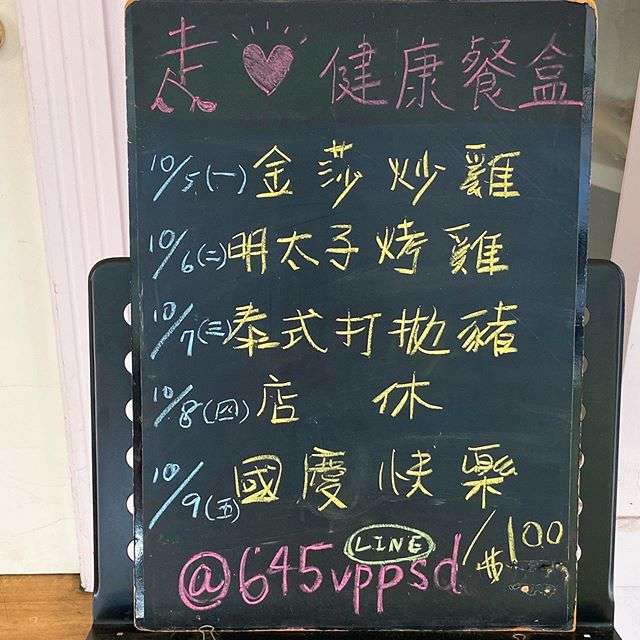 走❤健康餐盒
10/5(一)金莎炒雞
10/6(二)明太子烤雞
10/7(三)泰式打拋豬
10/8(四)店 休
10/9(五)國慶快樂
LINE
@645vppsd
/100